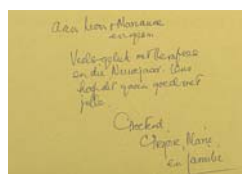 Aan Leon + Marianne
en gesin
Veels geluk met Kersfees
en die Nuwejaar. Ons
hoop dit gaan goed met
julle.
Groetend,
Marie
en familie